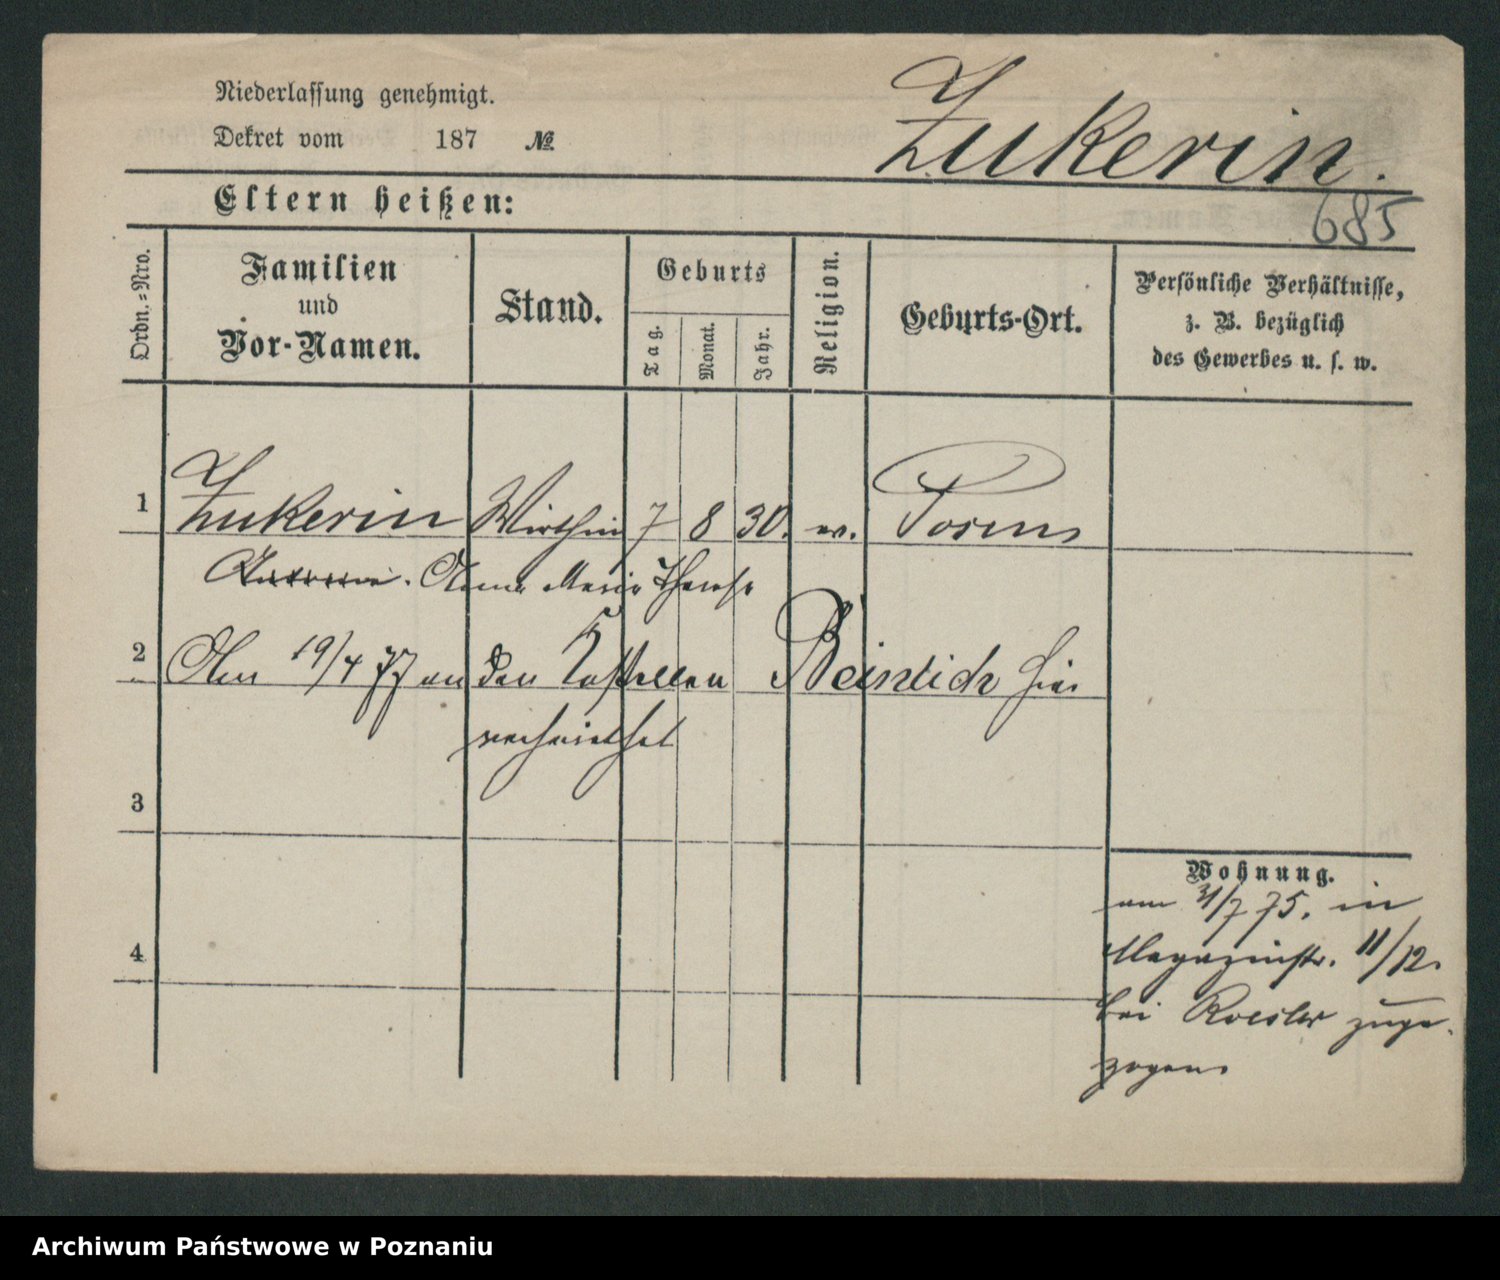 Niederlassung genehmigt.
Dekret vom 187 №
Zukerin.
Eltern heißen:
685
Ordn.=Nro.
Familien
und
Vor-Namen.
Stand.
Geburts
Tag.
Monat.
Jahr.
Religion.
Geburts-Ort.
Persönliche Verhältnisse,
z. B. bezüglich
des Gewerbes u. s. w.
1 Zukerin Wirthin 7 8 30. ev. Posen
Anna Marie Therese
2 Am 19/4 77 an den Kastellan Beintich hier
verheirathet
3
Wohnung.
am 31/7 75. in
Magazinstr. 11/12.
bei Roesler zuge-
zogen.
4
Archiwum Państwowe w Poznaniu